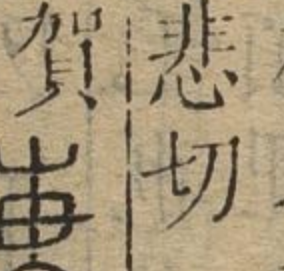 悲切
賀